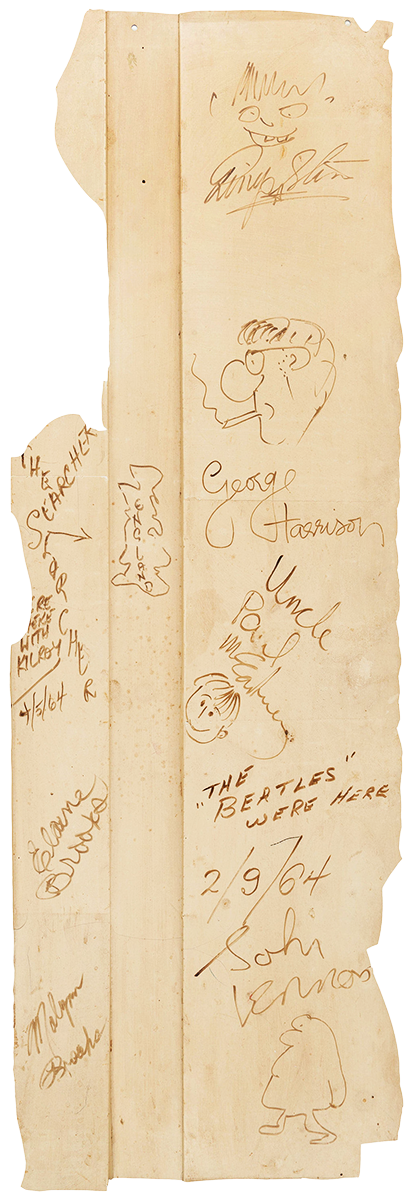 Ringo Starr
George
Harrison
Uncle
Paul
McCartney
"THE
BEATLES"
WERE HERE
2/9/64
John
Lennon
HE
SEARCHER
ERE
WITH
KILROY
4/5/64
Elaine
Brooks
Brooks